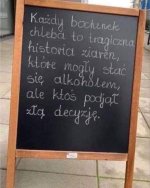 Każdy bochenek
chleba to tragiczna
historia ziaren,
które mogły stać
się alkoholem,
ale ktoś podjął
złą decyzję.